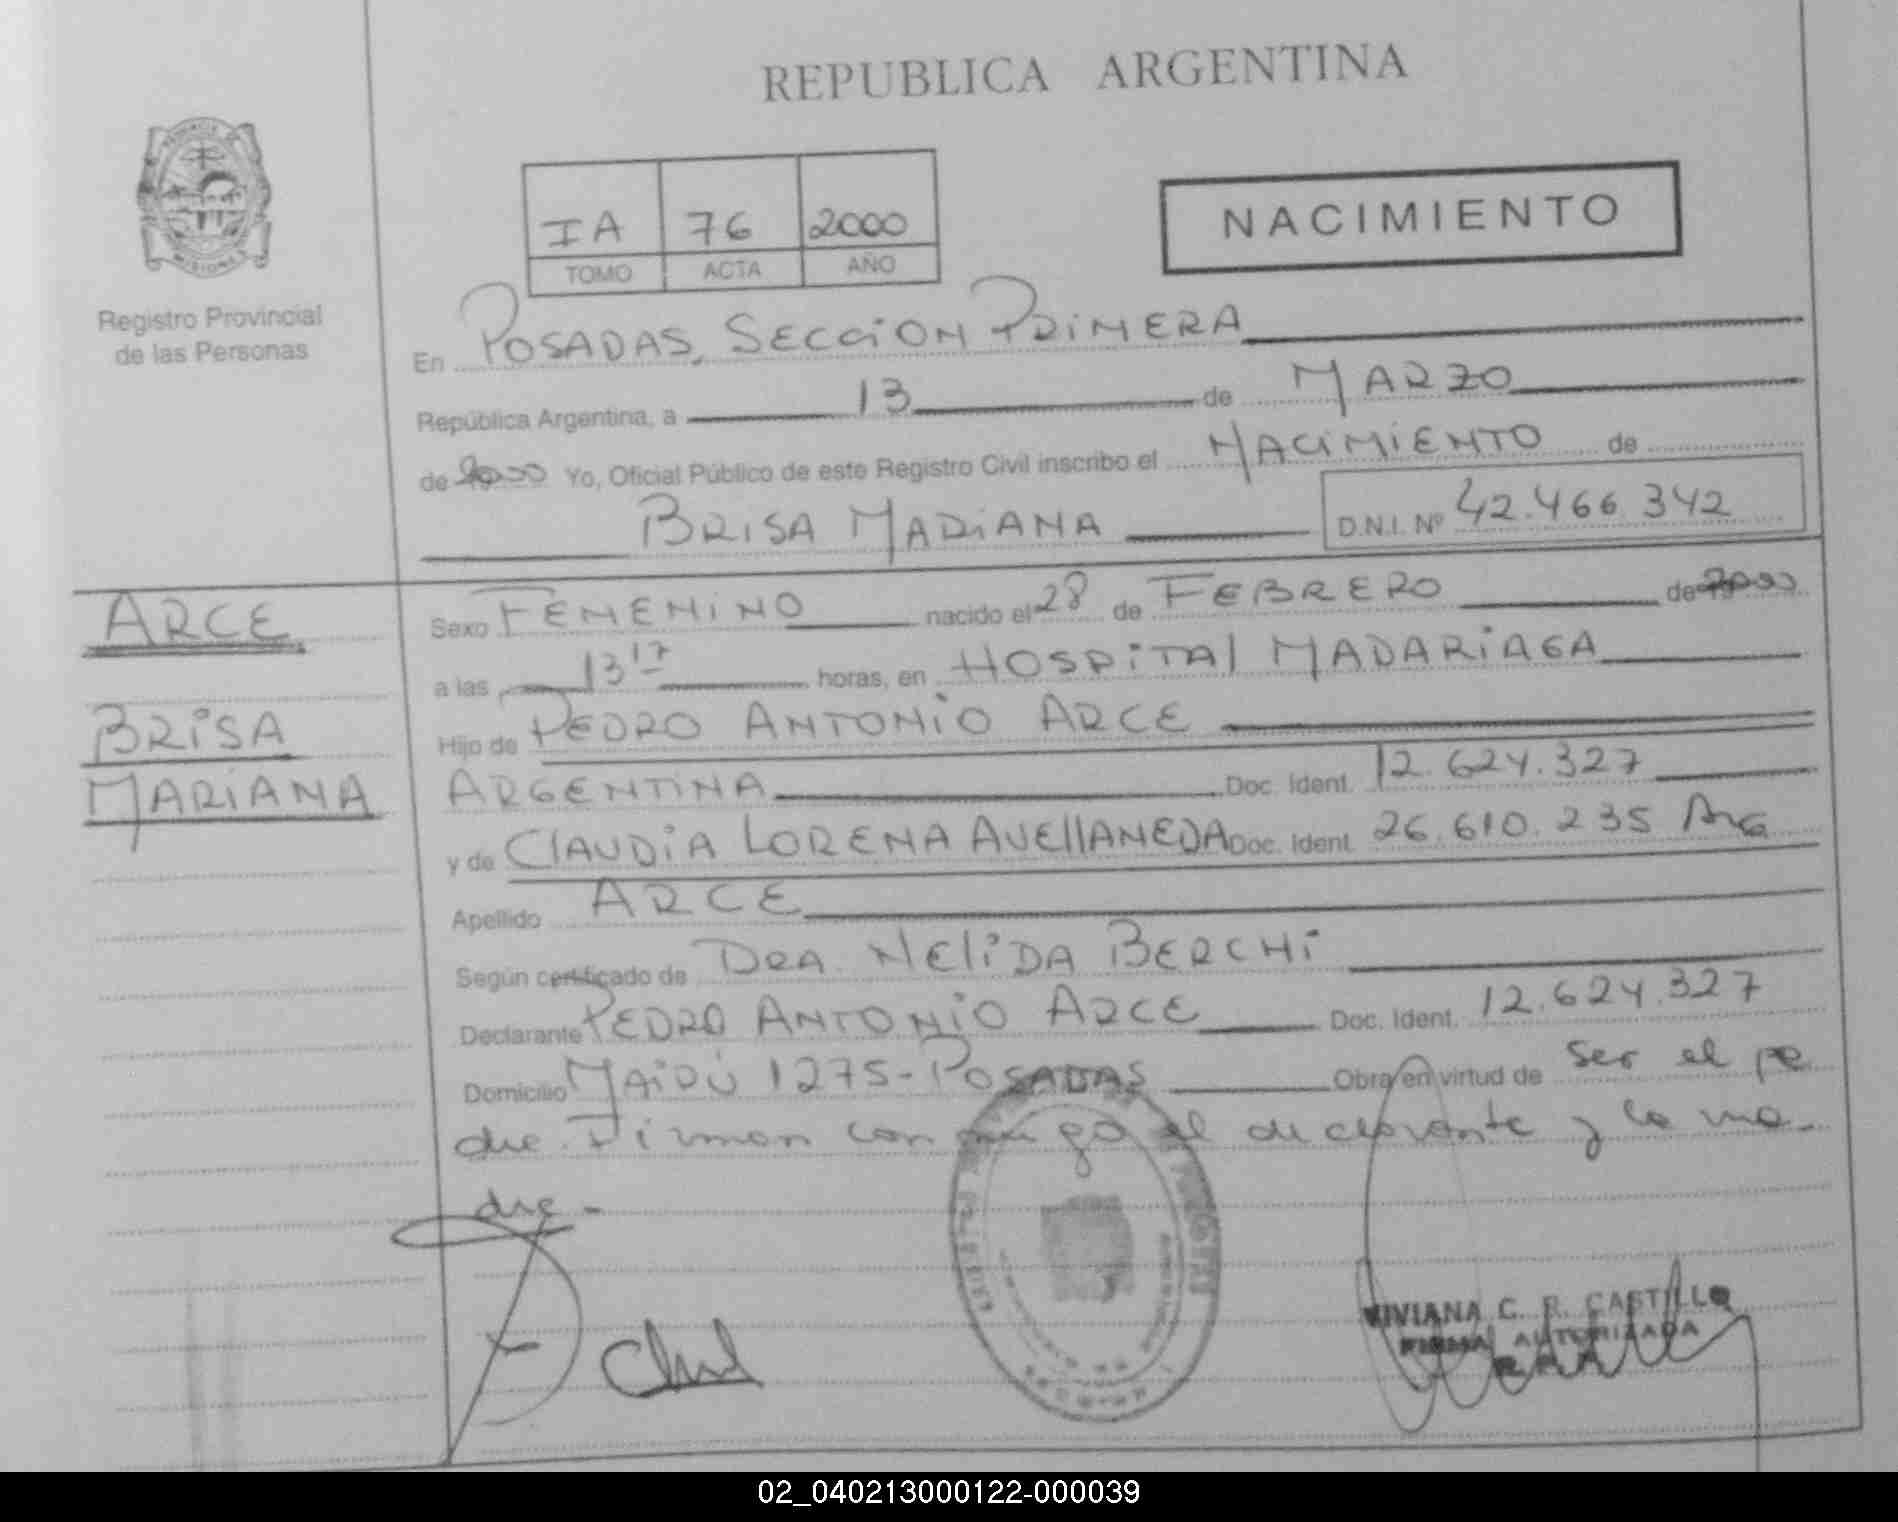 REPUBLICA ARGENTINA
PROVINCIA
MISIONES
Registro Provincial
de las Personas
IA 76 2000
TOMO ACTA AÑO
NACIMIENTO
En POSADAS, SECCION PRIMERA
República Argentina, a 13 de MARZO
de 2000 Yo, Oficial Público de este Registro Civil inscribo el NACIMIENTO de
BRISA MARIANA D.N.I. Nº 42.466.342
ARCE
BRISA
MARIANA
Sexo FEMENINO nacido el 28 de FEBRERO de 2000
a las 13 17 horas, en HOSPITAL MADARIAGA
Hijo de PEDRO ANTONIO ARCE
ARGENTINA Doc. Ident. 12.624.327
y de CLAUDIA LORENA AVELLANEDA Doc. Ident. 26.610.235 ARG
Apellido ARCE
Según certificado de DRA. NELIDA BERCHI
Declarante PEDRO ANTONIO ARCE Doc. Ident. 12.624.327
Domicilio MAIPÚ 1275-POSADAS Obra en virtud de ser el pa
dre. Firman conmigo el declarante y la ma-
dre -
VIVIANA C. R. CASTILLO
FIRMA AUTORIZADA
02_040213000122-000039